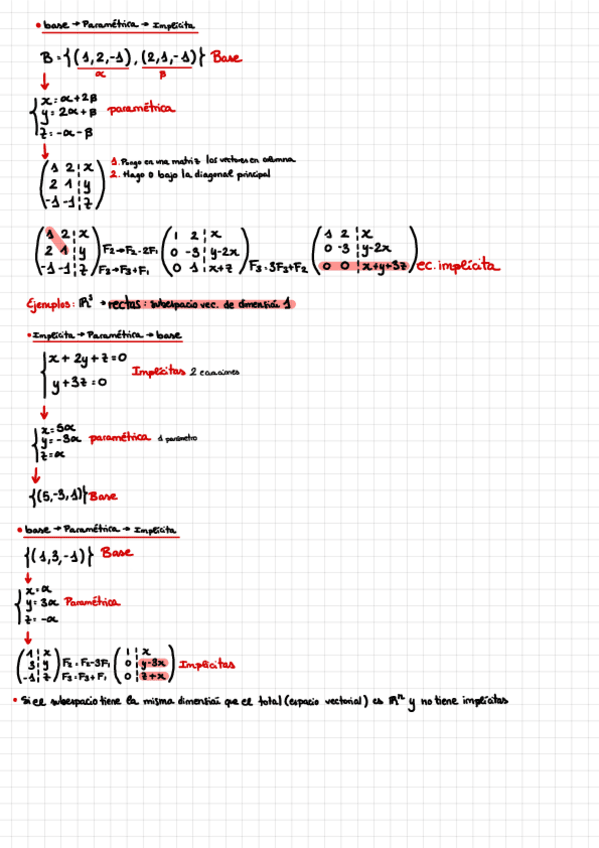 • base → Paramétrica → Implícita
B = {(1,2,-1), (2,1,-1)} Base
α β
x = α+2β
y = 2α+β paramétrica
z = -α-β
( 1 2 | x ) 1. Pongo en una matriz los vectores en columna
( 2 1 | y ) 2. Hago 0 bajo la diagonal principal
( -1 -1 | z )
( 1 2 | x ) ( 1 2 | x ) ( 1 2 | x )
( 2 1 | y ) F2→F2-2F1 ( 0 -3 | y-2x ) ( 0 -3 | y-2x )
( -1 -1 | z ) F3→F3+F1 ( 0 1 | x+z ) F3=3F3+F2 ( 0 0 | x+y+3z ) ec. implícita
Ejemplos: ℝ³ → rectas: subespacio vec. de dimensión 1
• Implícita → Paramétrica → base
x + 2y + z = 0
Implícitas 2 ecuaciones
y + 3z = 0
x = 5α
y = -3α paramétrica 1 parámetro
z = α
{(5,-3,1)} Base
• base → Paramétrica → Implícita
{(1,3,-1)} Base
x = α
y = 3α Paramétrica
z = -α
( 1 | x ) ( 1 | x )
( 3 | y ) F2 = F2-3F1 ( 0 | y-3x ) Implícitas
( -1 | z ) F3 = F3+F1 ( 0 | z+x )
• Si el subespacio tiene la misma dimensión que el total (espacio vectorial) es ℝⁿ y no tiene implícitas